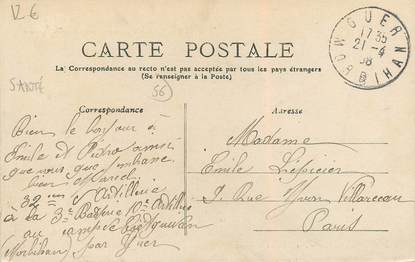 12 €
SANTÉ
(56)
GUER
17 35
21 - 4
08
MORBIHAN
CARTE POSTALE
La Correspondance au recto n'est pas acceptée par tous les pays étrangers
(Se renseigner à la Poste)
Correspondance
Bien le bonjour à
Emile et Pedro ainsi
que vous que j'embrasse
bien Marcel
32 d'Artillerie
à la 3e Batterie 10e Artillerie
au camp de Coëtquidan
(Morbihan) par Guer
Adresse
Madame
Emile Lépicier
Rue Yvon Villarceau
Paris